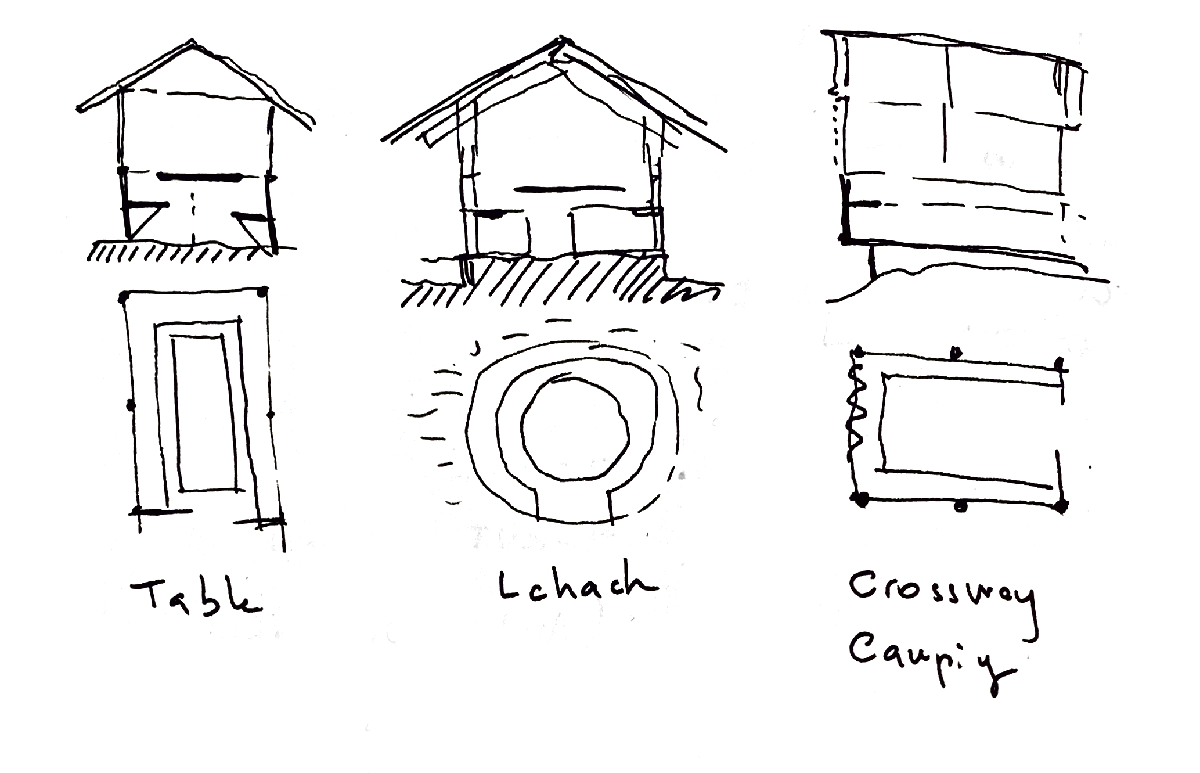 Table
Lchach
Crossway
Caupiy